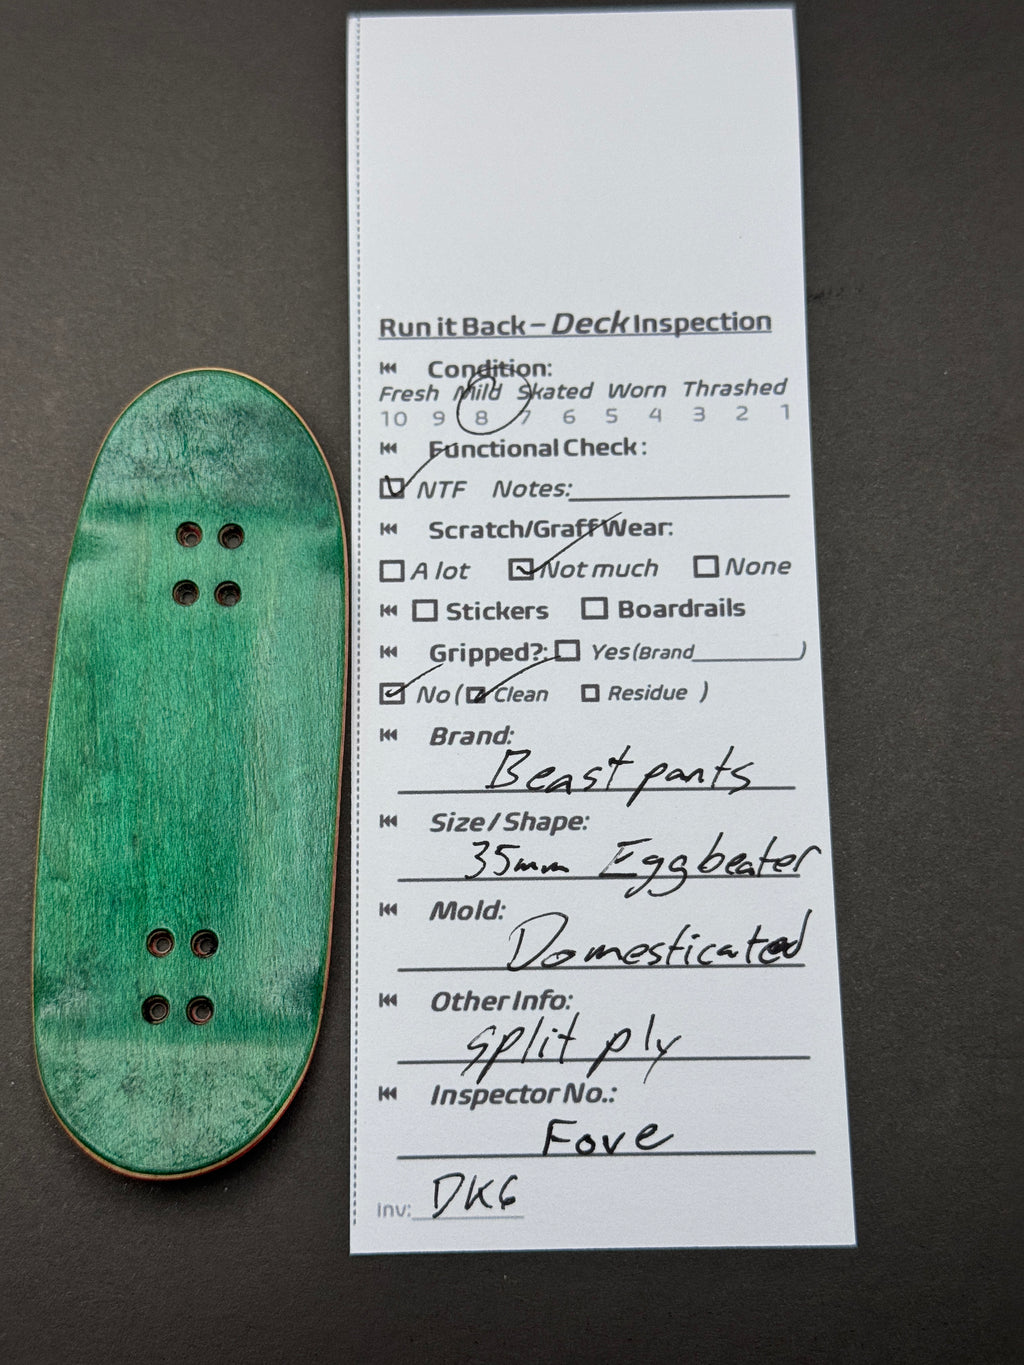 Run it Back – Deck Inspection
⏮ Condition:
Fresh Mild Skated Worn Thrashed
10 9 8 7 6 5 4 3 2 1
⏮ Functional Check:
☑ NTF Notes:
⏮ Scratch/Graff Wear:
☐ A lot ☑ Not much ☐ None
⏮ ☐ Stickers ☐ Boardrails
⏮ Gripped?: ☐ Yes (Brand__________)
☑ No (☑ Clean ☐ Residue )
⏮ Brand:
Beast pants
⏮ Size / Shape:
35mm Eggbeater
⏮ Mold:
Domesticated
⏮ Other Info:
split ply
⏮ Inspector No.:
Fove
inv: DK6